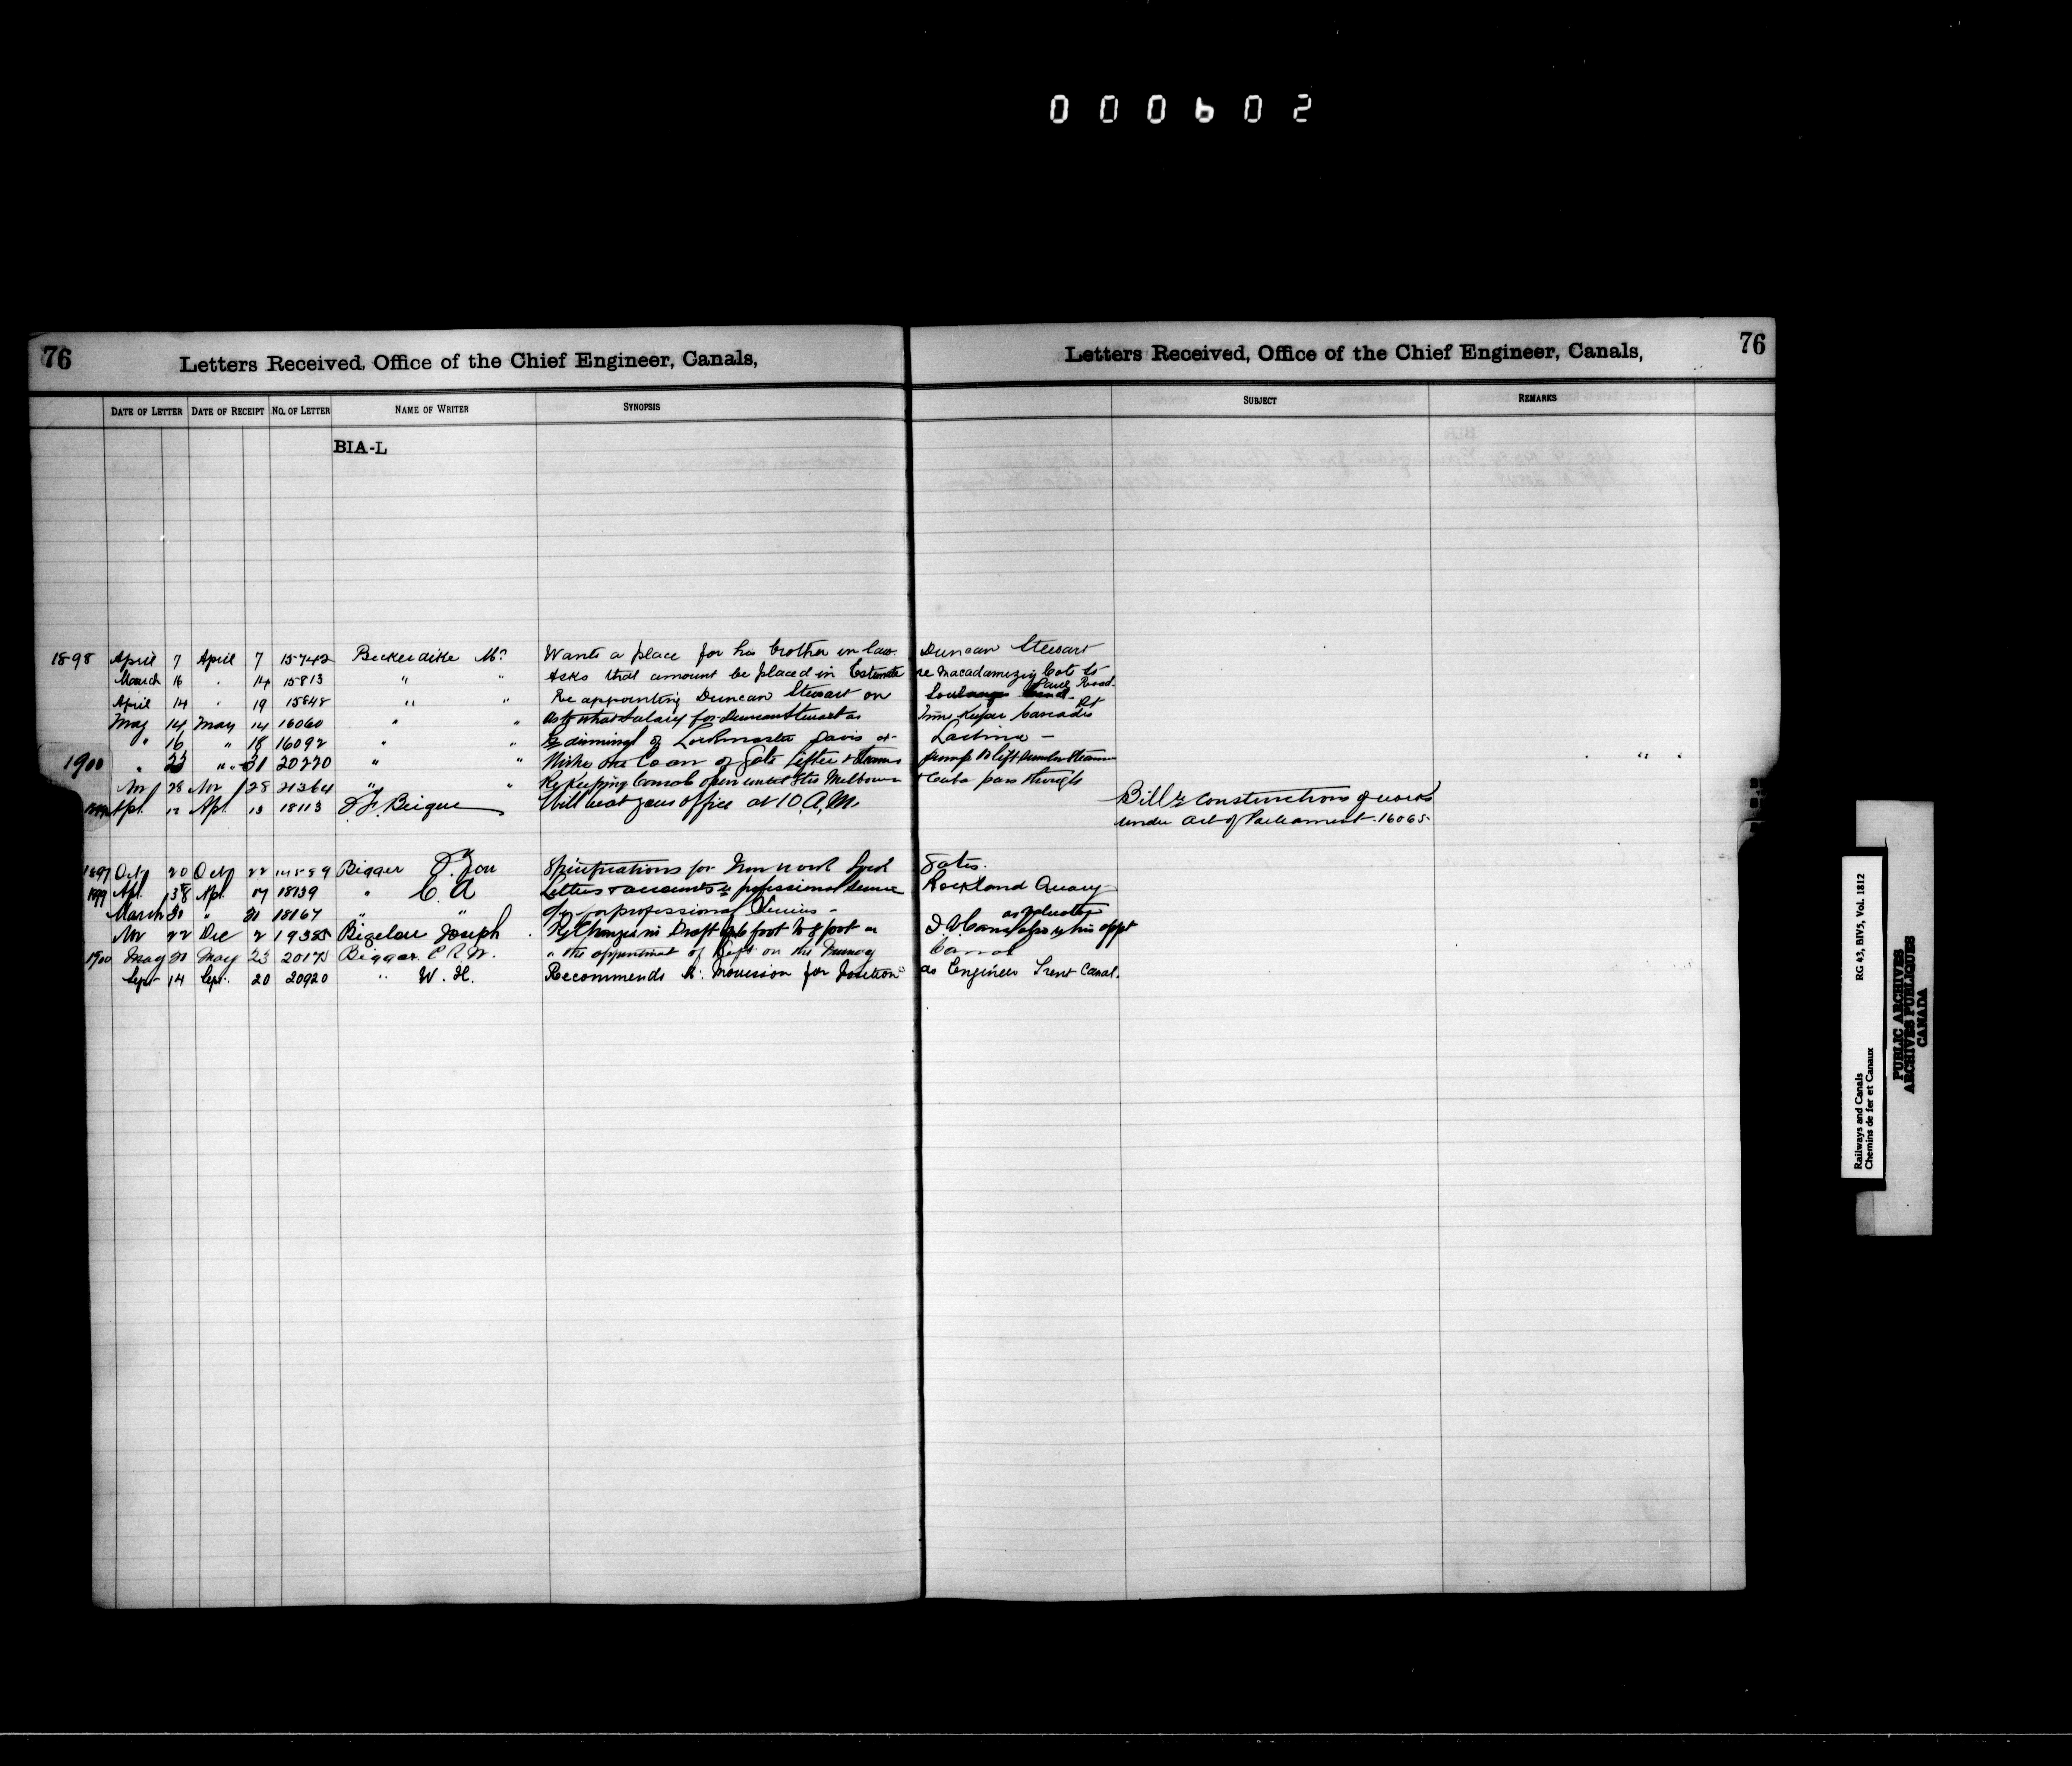 000602
76 Letters Received, Office of the Chief Engineer, Canals,
Letters Received, Office of the Chief Engineer, Canals, 76
DATE OF LETTER DATE OF RECEIPT NO. OF LETTER NAME OF WRITER SYNOPSIS SUBJECT REMARKS
BIA-L
1898 April 7 April 7 15742 Bickerdike Mr Wants a place for his brother in law Duncan Stewart
March 16 " 14 15813 " " Asks that amount be placed in Estimate re Macadamizing Cote St Paul Road
April 14 " 19 15848 " " Re appointing Duncan Stewart on Soulanges Canal
May 14 May 14 16060 " " as to what Salary for Duncan Stewart as Time Keeper Cascades Pt
" 16 " 18 16092 " " Re dismissal of Lockmaster Davis at Lachine -
1900 " 23 " 31 20220 " " Wishes the loan of Gate Lifter & Pump to lift
Nov 28 Nov 28 21364 " " Re Keeping Canal open until the Melbourne & Cuba pass through
1899 Apl. 12 Apl. 13 18113 F. Beique Will be at your office at 10 A.M. Bill re construction of works
under Act of Parliament 16065
1897 Oct 20 Oct 22 14589 Bigger Specifications for Iron work Gates.
1899 Apl. Apl. 17 18139 " C. A Letters & accounts re professional service Rockland Quarry
March 30 " 31 18167 " " for professional Services - as valuator
Nov 22 Dec 2 19385 Bigelow Joseph Re Change in Draft 6 foot to 8 foot on Canal also re his appt
1900 May 21 May 23 20175 Biggar C. R. W. " the appointment of on the Murray Canal
Sept 14 Sept. 20 20920 " W. H. Recommends Mr. Morrison for Position as Engineer Trent Canal.
RG 43, BIV5, Vol. 1812
Railways and Canals
Chemins de fer et Canaux
PUBLIC ARCHIVES
ARCHIVES PUBLIQUES
CANADA